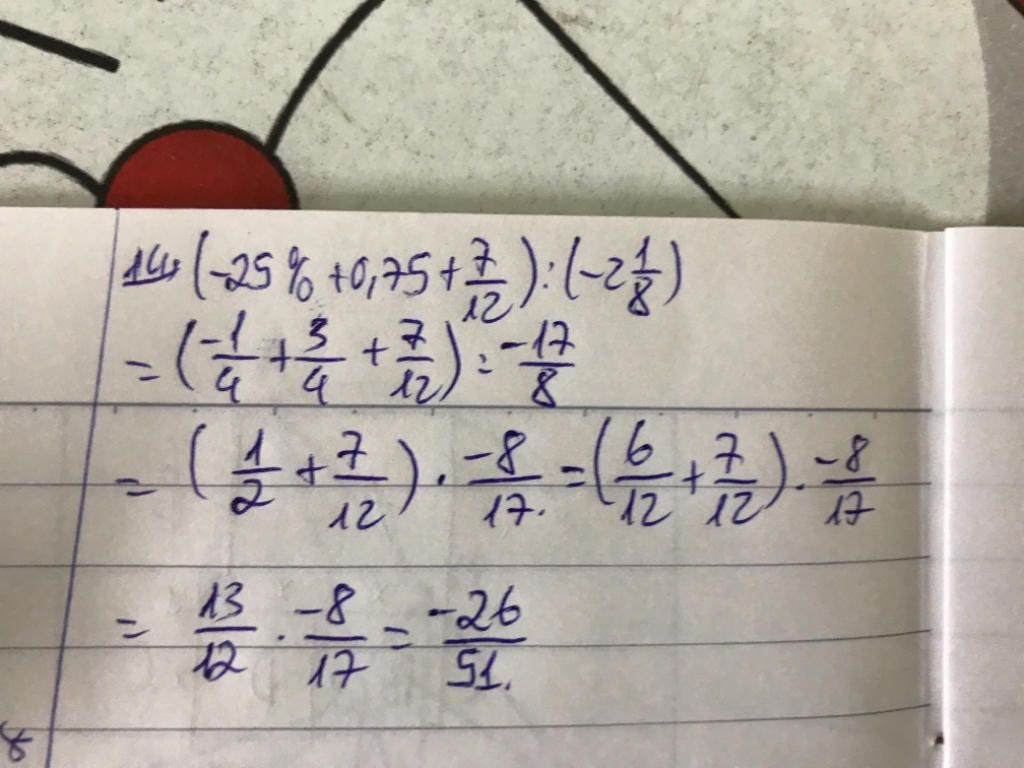 14, (-25% + 0,75 + 7/12) : (-2 1/8)
= (-1/4 + 3/4 + 7/12) : -17/8
= (1/2 + 7/12) . -8/17. = (6/12 + 7/12) . -8/17
= 13/12 . -8/17 = -26/51.
8